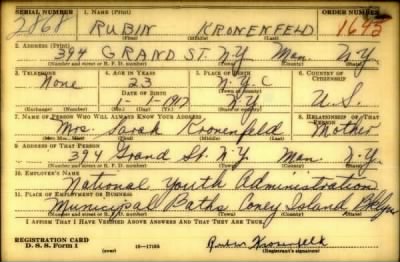 SERIAL NUMBER 1. NAME (Print) ORDER NUMBER
2868 RUBIN KRONENFELD 1645
(First) (Middle) (Last)
2. ADDRESS (Print)
394 GRAND ST. N.Y. Man. N.Y.
(Number and street or R. F. D. number) (Town) (County) (State)
3. TELEPHONE 4. AGE IN YEARS 5. PLACE OF BIRTH 6. COUNTRY OF CITIZENSHIP
None 23 N.Y.C
DATE OF BIRTH (Town or county)
1-1917 N.Y. U.S.
(Exchange) (Number) (Mo.) (Day) (Yr.) (State or country)
7. NAME OF PERSON WHO WILL ALWAYS KNOW YOUR ADDRESS 8. RELATIONSHIP OF THAT PERSON
Mrs. Sarah Kronenfeld Mother
(Mr., Mrs., Miss) (First) (Middle) (Last)
9. ADDRESS OF THAT PERSON
394 Grand St. N.Y. Man. N.Y.
(Number and street or R. F. D. number) (Town) (County) (State)
10. EMPLOYER'S NAME
National Youth Administration
11. PLACE OF EMPLOYMENT OR BUSINESS
Municipal Baths Coney Island
(Number and street or R. F. D. number) (Town) (County) (State)
I AFFIRM THAT I HAVE VERIFIED ABOVE ANSWERS AND THAT THEY ARE TRUE.
REGISTRATION CARD
D. S. S. Form 1 16-17105 Rubin Kronenfeld
(Registrant's signature)